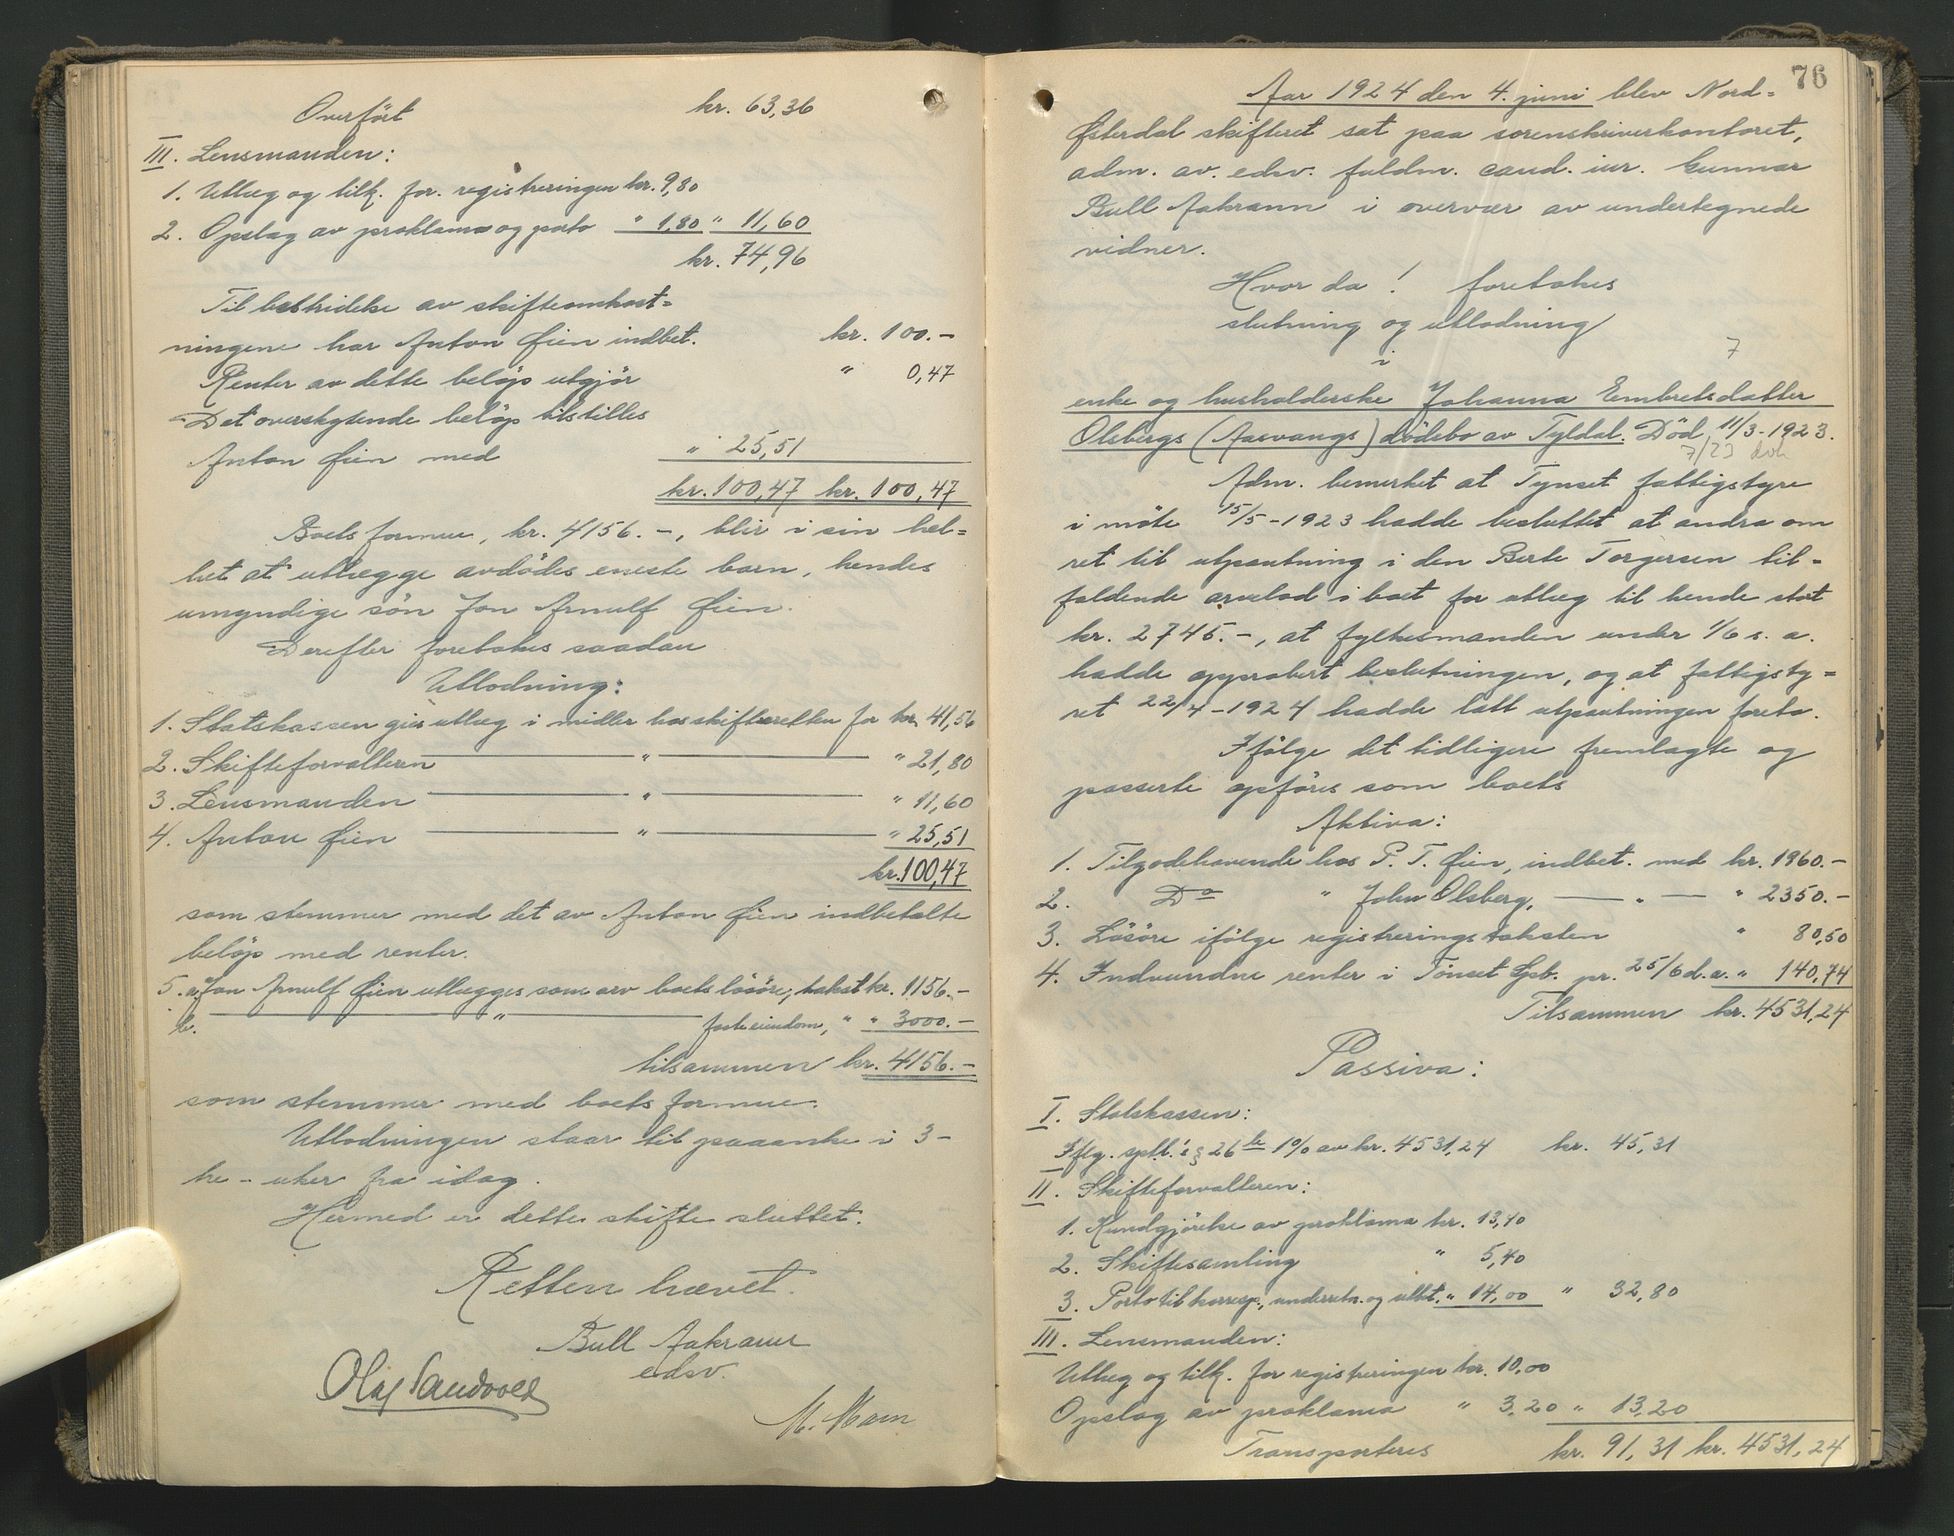 Overført kr. 63,36
III. Lensmanden:
1. Utlæg og tilk. for. registreringen kr. 9,80
2. Opslag av proklama og porto " 1,80 " 11,60
kr. 74,96
Til bestridelse av skifteomkost=
ningene har Anton Øien indbet. kr. 100.-
Renter av dette beløp utgjør " 0,47
Det overskytende beløp tilstilles
Anton Øien med " 25,51
kr. 100,47 kr. 100,47
Boets formue, kr. 4156.-, blir i sin hel=
het at utlægge avdødes eneste barn, hendes
umyndige søn Jon Arnulf Øien.
Derefter foretokes saadan
Utlodning:
1. Statskassen gies utlæg i midler hos skifteretten for kr. 41,56
2. Skifteforvalteren " " 21,80
3. Lensmanden " " 11,60
4. Anton Øien " " 25,51
kr. 100,47
som stemmer med det av Anton Øien indbetalte
beløp med renter.
5. a. Jon Arnulf Øien utlægges som arv boets løsøre, takst kr. 1156.-
b. " faste eiendom, " " 3000.-
tilsammen kr. 4156.-
som stemmer med boets formue.
Utlodningen staar til paaanke i 3-
tre - uker fra idag.
Hermed er dette skifte sluttet.
Retten hævet.
Bull Aakrann
edsv.
Olaf Sandvold
M. Moen
76
Aar 1924 den 4. juni blev Nord=
Østerdal skifteret sat paa sorenskriverkontoret,
adm. av. edsv. fuldm. cand. iur. Gunnar
Bull Aakrann i overvær av undertegnede
vidner.
Hvor da! foretokes
slutning og utlodning
i
7
enke og husholderske Johanna Embretsdatter
Olsbergs (Aasvangs) dødsbo av Tyldal. Død 11/3-1923.
7/23 dok
Adm. bemerket at Tynset fattigstyre
i møte 15/5-1923 hadde besluttet at andra om
ret til utpantning i den Berte Torgersen til=
faldende arvelod i boet for utlæg til hende stort
kr. 2745.-, at fylkesmanden under 1/6 s. a.
hadde approbert beslutningen, og at fattigsty=
ret 22/4-1924 hadde latt utpantningen foreta.
Ifølge det tidligere fremlagte og
passerte opføres som boets
Aktiva:
1. Tilgodehavende hos P. T. Øien, indbet. med kr. 1960.-
2. Do " John Olsberg, " " 2350.-
3. Løsøre ifølge registreringstaksten " 80,50
4. Indvundne renter i Tønset Spb. pr. 25/6 d. a. " 140,74
Tilsammen kr. 4531,24
Passiva:
I. Statskassen:
Iflg. sptl. § 26 b 1% av kr. 4531,24 kr. 45,31
II. Skifteforvalteren:
1. Kundgjørelse av proklama kr. 13,40
2. Skiftesamling " 5,40
3. Porto til korresp., underretn. og utskt. " 14,00 " 32,80
III. Lensmanden:
Utlæg og tilk. for registreringen kr. 10,00
Opslag av proklama " 3,20 " 13,20
Transporteres kr. 91,31 kr. 4531,24